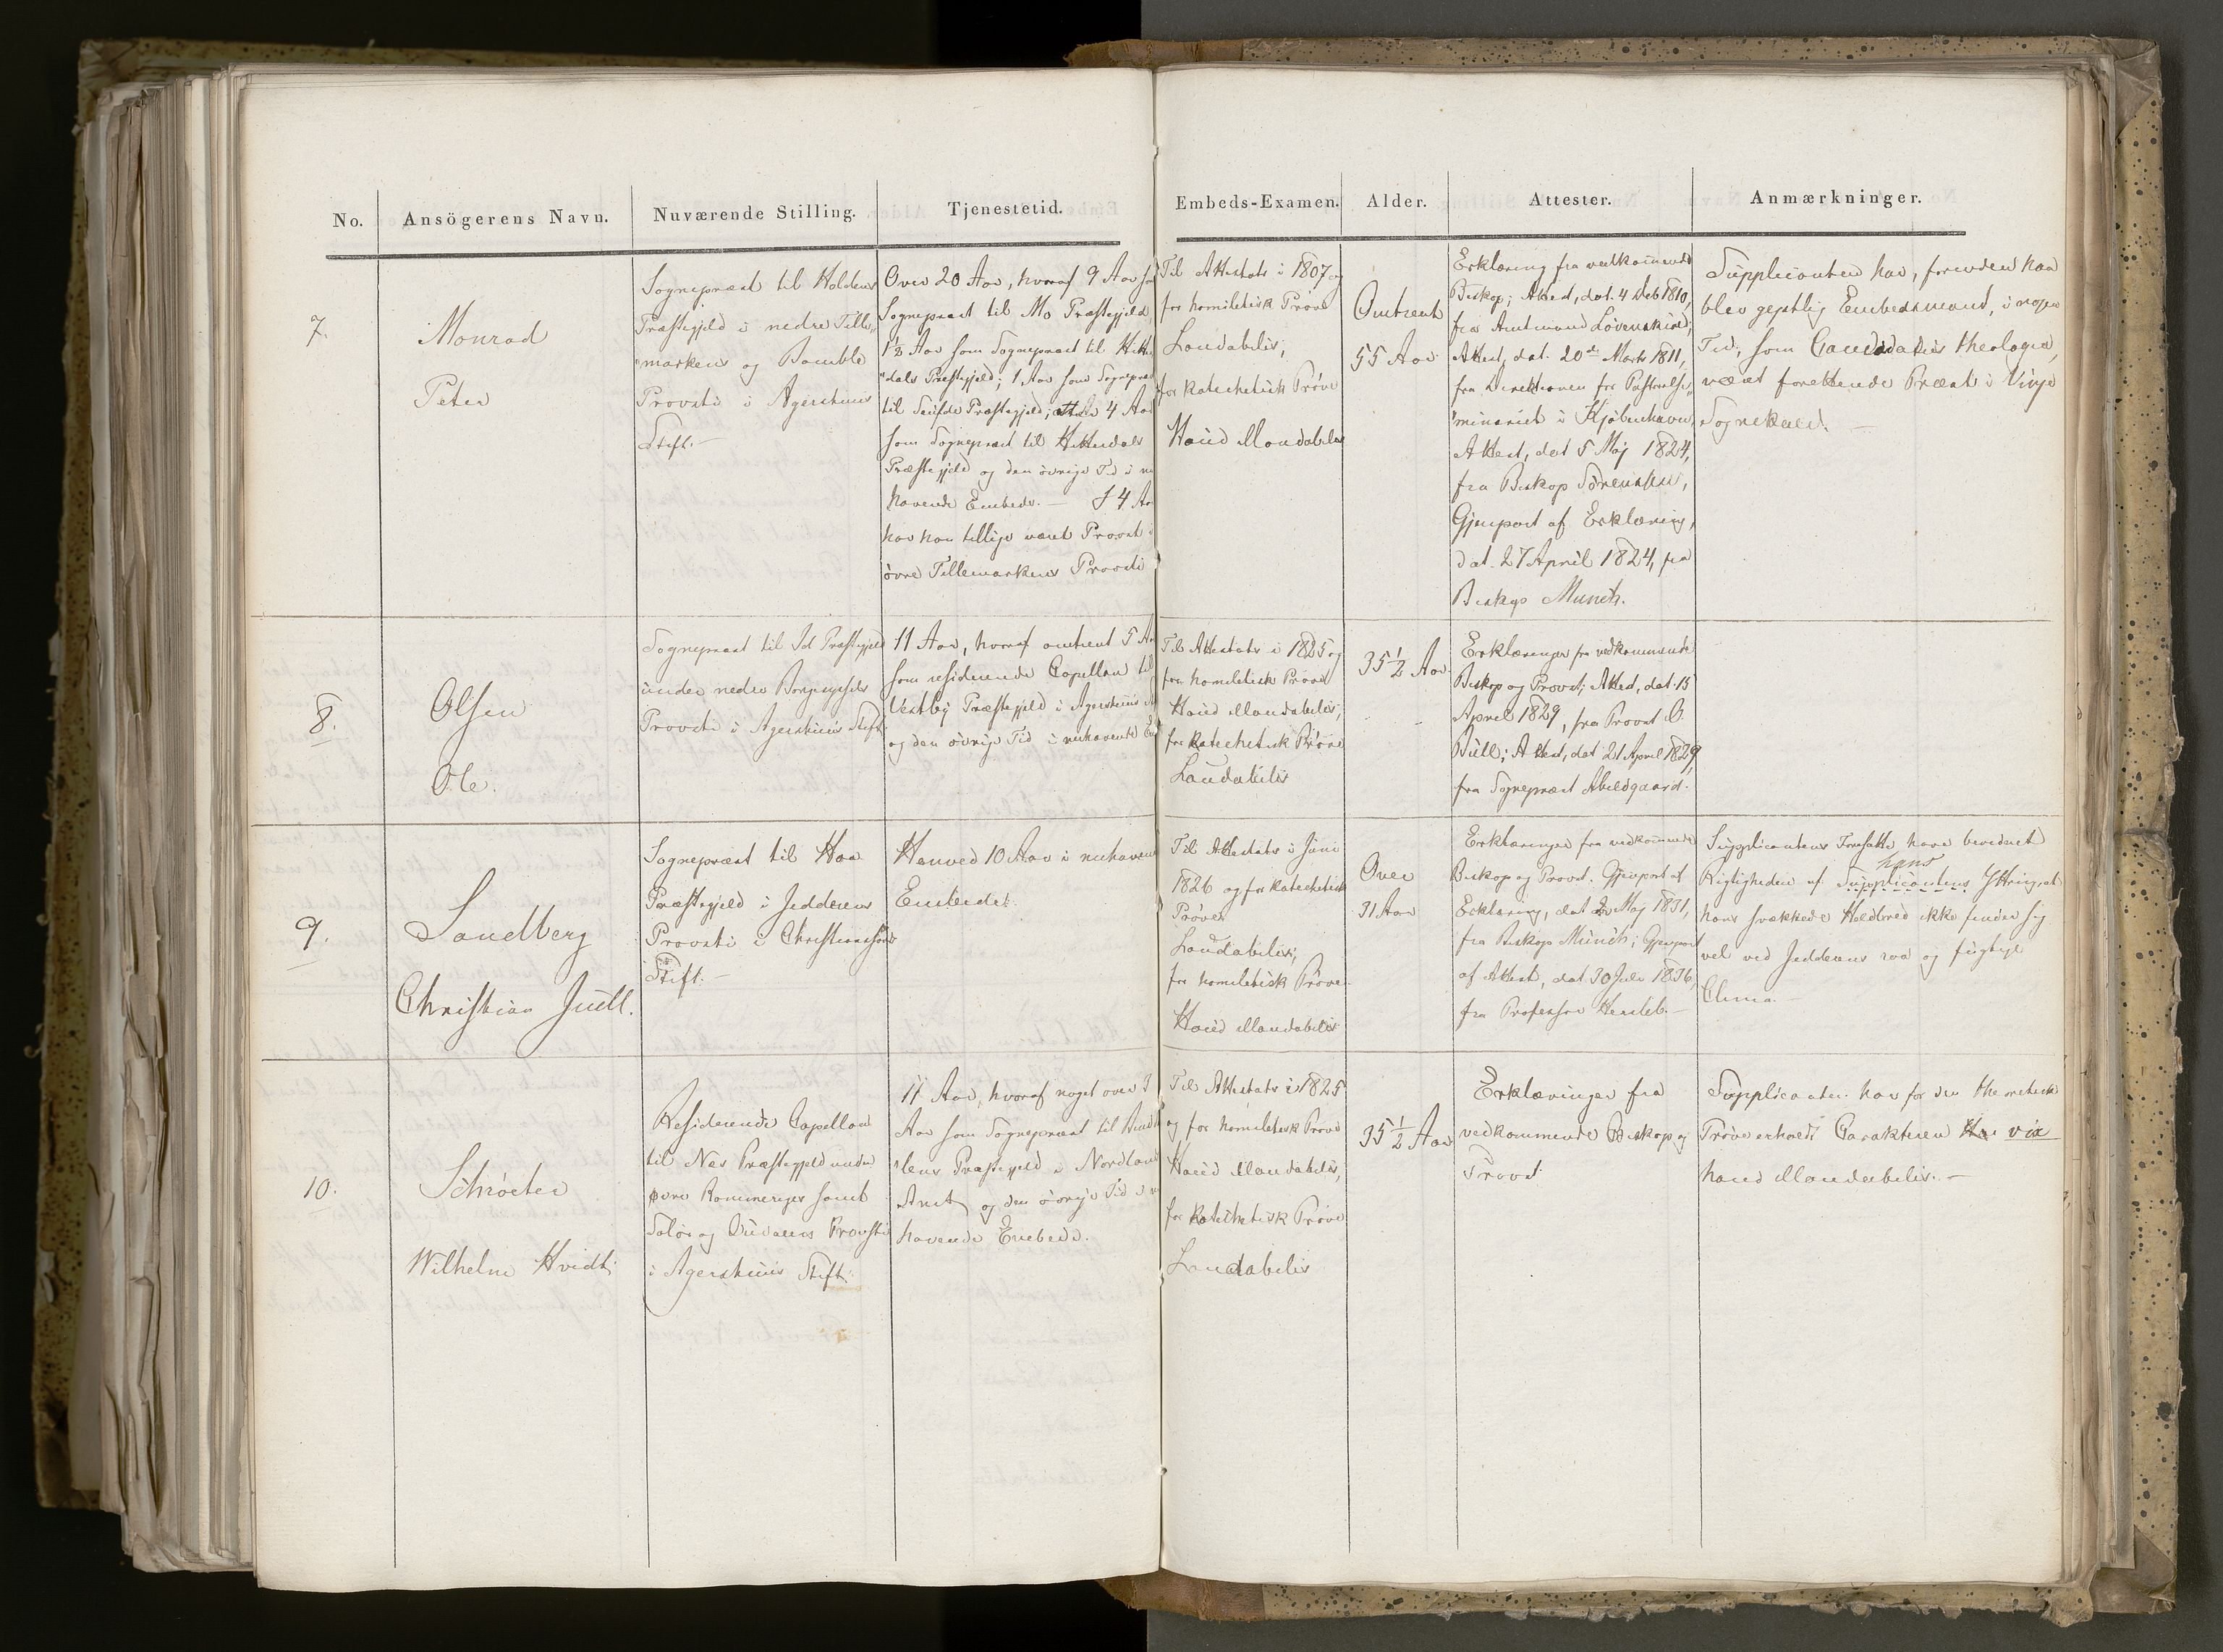 No. Ansögerens Navn. Nuværende Stilling. Tjenestetid. Embeds-Examen. Alder. Attester. Anmærkninger.
7.
Monrad
Peter
Sognepræst til Holdens
Præstegjeld i nedre Tille„
„markens og Bamble
Provsti i Agershuus
Stift.
Over 20 Aar, hvoraf 9 Aar
Sognepræst til Mo Præstegjeld
1½ Aar som Sogneprest til Hitter
„dals Præstegjeld; 1 Aar som Sogneprest
til Præstegjeld; atter 4 Aar
som Sogneprest til Hitterdals
Præstegjeld og den øvrige Tid i nu
havende Embede. — I 4 Aar
har han tillige været Provst i
övre Tellemarkens Provsti
Til Attestats i 1807 og
for homiletisk Prøve
Laudabilis;
for katechetisk Prøve
Haud illaudabilis
Omtrent
55 Aar
Erklæring fra vedkommende
Biskop; Attest, dat. 4 Feb 1810,
fra Amtmand Løvenskiold;
Attest, dat. 20de Marts 1811,
fra Direktionen for Pastoralse„
„minariet i Kjøbenhavn,
Attest, dat 5 Maj 1824,
fra Biskop Sörensen,
Gjenpart af Erklæring,
dat. 27 April 1824, fra
Biskop Munch.
Supplicanten har, forinden han
blev gejstlig Embedsmand, i nogen
Tid, som Candidatus theologiæ,
været forettende Præst i Vinje
Sognekald. —
8.
Olsen
Ole.
Sogneprest til Id Præstegjeld
under nedre Borgesyssels
Provsti i Agershuus Stift
11 Aar, hvoraf omtrent 5 Aar
som residerende Capellan til
Vestby Præstegjeld i Agershuus
og den øvrige Tid i nuhavende
Til Attestats i 1825 og
for homiletisk Prøve
Haud illaudabilis;
for katechetisk Prøve
Laudabilis
35½ Aar
Erklæringer fra vedkommende
Biskop og Provst; Attest, dat. 15
April 1829, fra Provst
Bull; Attest, dat 21 April 1829,
fra Sogneprest Abildgaard.
9.
Sandberg
Christian Juell.
Sogneprest til Haa
Præstegjeld i Jedderens
Provsti i Christiansands
Stift. —
Henved 10 Aar i nuhavende
Embede.
Til Attestats i Juni
1826 og for katechetisk
Prøve
Laudabilis;
for homiletisk Prøve
Haud illaudabilis
Over
31 Aar
Erklæringer fra vedkommende
Biskop og Provst. Gjenpart af
Erklæring, dat 2 Maj 1831,
fra Biskop Munch; Gjenpart
af Attest, dat 30 Juli 1836,
fra Professor Hersleb. —
Supplicantens Foresatte have bevidnet
hans
Rigtigheden af Supplicantens Yttring, at
hans svækkede Helbred ikke finder sig
vel ved Jedderens raa og fugtige
Clima. —
10.
Schröeter
Wilhelm Hvidt.
Residerende Capellan
til Næs Præstegjeld under
øvre Romeriges samt
Solør og Oudalens Provsti
i Agershuus Stift.
11 Aar, hvoraf noget over 3
Aar som Sogneprest til
„lens Præstegjeld i Nordlands
Amt og den øvrige Tid i nu
havende Embede.
Til Attestats i 1825
og for homiletisk Prøve
Haud illaudabilis,
for katechetisk Prøve
Laudabilis
35½ Aar
Erklæringer fra
vedkommende Biskop og
Provst
Supplicanten har for den theoretisk
Prøve erholdt Carakteren vix
haud illaudabilis. —